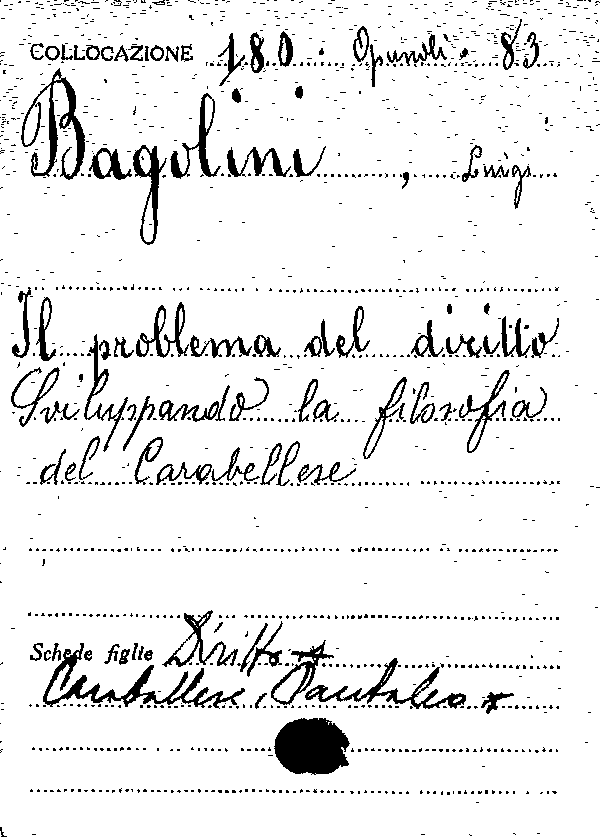 COLLOCAZIONE 180. Opuscoli. 83
Bagolini, Luigi
Il problema del diritto
Sviluppando la filosofia
del Carabellese
Schede figlie Diritto *
Carabellese, Pantaleo *